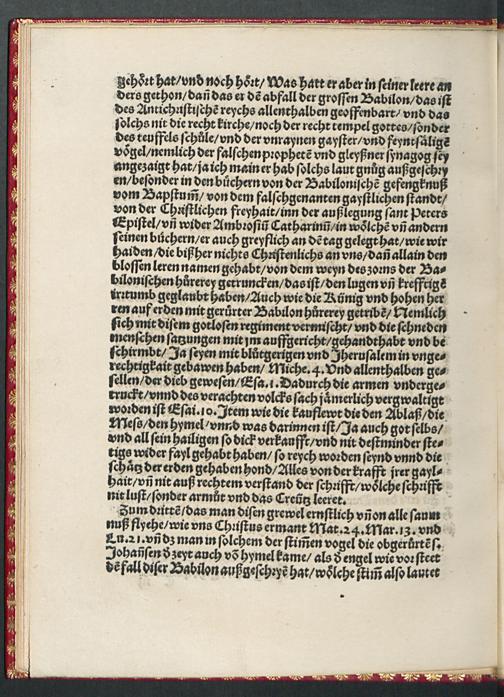 gehört hat/vnd noch hört/Was hatt er aber in seiner leere an
ders gethon/dañ das er dē abfall der grossen Babilon/das ist
des Antichristischē reychs allenthalben geoffenbart/vnd das
solchs nit die recht kirche/noch der recht tempel gottes/sonder
des teuffels schůle/vnd der vnraynen gayster/vnd feyntsälige
vögel/nemlich der falschen prophetē vnd gleyßner synagog sey
angezaigt hat/ja ich main er hab solchs laut gnůg außgeschry
en/besonder in den büchern von der Babilonischē gefengknuß
vom Bapstum̃/von dem falschgenanten gaystlichen standt/
von der Christlichen freyhait/inn der außlegung sant Peters
Epistel/vñ wider Ambrosiũ Catharinũ/in wölchē vñ andern
seinen büchern/er auch greyflich an dē tag gelegt hat/wie wir
haiden/die bißher nichts Christenlichs an vns/dañ allain den
blossen leren namen gehabt/von dem weyn des zorns der Ba-
bilonischen hůrerey getruncken/das ist/den lugen vñ kreffrigē
irrtumb geglaubt haben/Auch wie die Künig vnd hohen her
ren auf erden mit gerürter Babilon hůrerey getribē/Nemlich
sich mit disem gotlosen regiment vermischt/vnd die schneden
menschen satzungen mit jm auffgericht/gehandthabt vnd be
schirmbt/Ja seyen mit blůtgerigen vnd Jherusalem in vnge-
rechtigkait gebawen haben/Miche.4.Vnd allenthalben ge-
sellen/der dieb gewesen/Esa.1.Dadurch die armen vnderge-
truckt/vnnd des verachten volcks sach jämerlich vergwaltigt
worden ist Esai.10.Item wie die kauflewt die den Ablaß/die
Mess/den hymel/vnnd was darinnen ist/Ja auch got selbs/
vnd all sein hailigen so dick verkaufft/vnd nit destminder ste-
tigs wider fayl gehabt haben/so reych worden seynd vnnd die
schätz der erden gehaben hond/Alles von der krafft jrer gayl-
hait/vñ nit auß rechtem verstand der schrifft/wölche schrifft
nit lust/sonder armůt vnd das Creütz leeret.
Zum drittē/das man disen grewel ernstlich vñ on alle saum
nuß flyehe/wie vns Christus ermant Mat.24.Mar.13.vnd
Lu.21.vñ dz man in solchem der stim̃en vogel die obgerürtē S.
Johañsen d̄ zeyt auch vō hymel kame/als d̄ engel wie vor steet
dē fall diser Babilon außgeschryē hat/wölche stim̃ also lautet